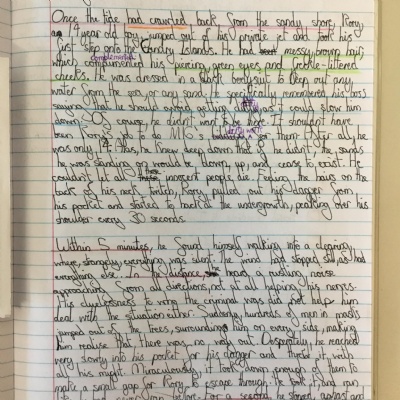 Once the tide had crawled back from the sandy shore, Rory,
a 14 year old boy jumped out of his private jet and took his
first step onto the Islands. He had messy, brown hair,
which complemented his piercing green eyes and freckle-littered
cheeks. He was dressed in a black bodysuit to keep out any
water from the sea, or any sand. He specifically remembered his boss
saying that he should avoid getting as it could slow him
down. Of course, he didn't want to be here. It shouldn't have
been Rory's job to do for them. After all, he
was only 14. Thus, he knew deep down that if he didn't, the sands
he was standing on would be blown up, and cease to exist. He
couldn't let all those innocent people die. Feeling the hairs on the
back of his neck twitch, Rory pulled out his dagger from
his pocket and started to hack at the undergrowth, peaking over his
shoulder every 30 seconds.
Within 5 minutes, he found himself walking into a clearing
where, strangely, everything was silent. The wind had stopped still, as had
everything else. In the distance, he heard a rustling noise
approaching from all directions, not at all helping his nerves.
His cluelessness to who the criminal was did not help him
deal with the situation either. Suddenly, hundreds of men in masks
jumped out of the trees, surrounding him on every side, making
him realise that there was no way out. Desperately, he reached
very slowly into his pocket for his dagger and threw it with
all his might. Miraculously, it took down enough of them to
make a small gap for Rory to escape through. He took it, and ran
like never before. For a second, he